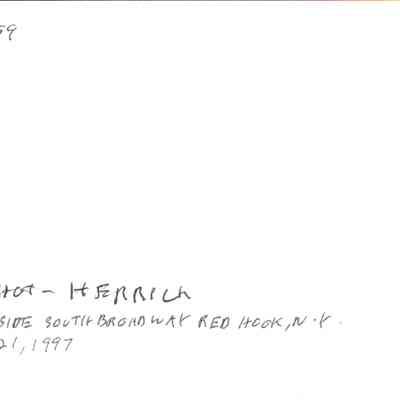 59
HOT - HERRICK
SIDE SOUTH BROADWAY RED HOOK, N.Y.
21, 1997